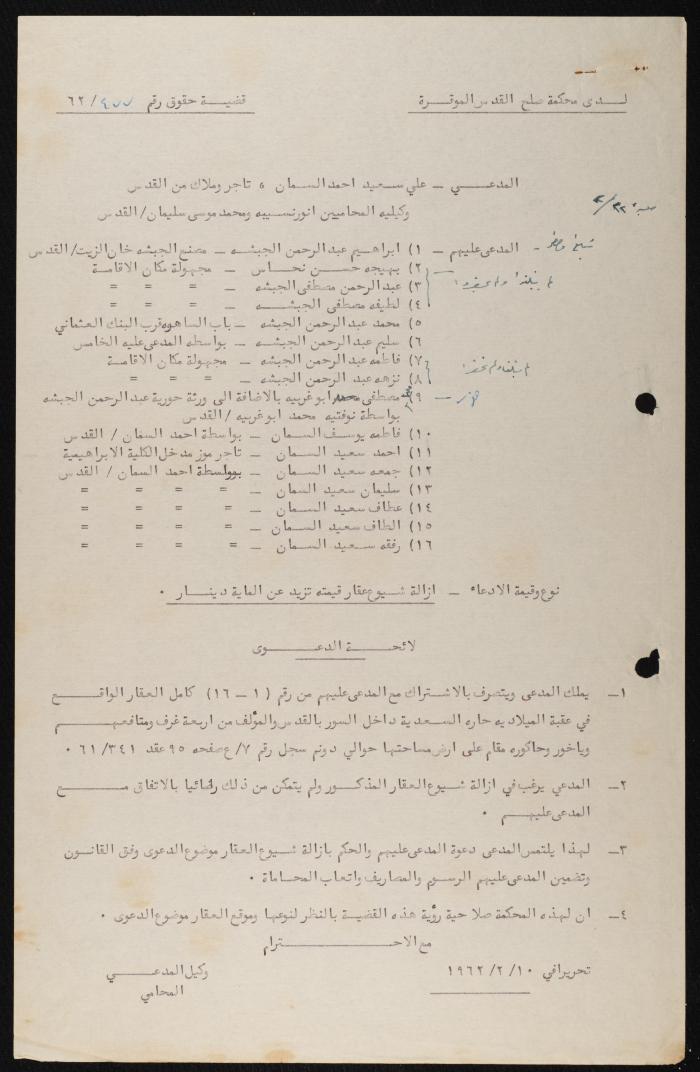 لدى محكمة صلح القدس الموقرة
قضية حقوق رقم /٦٢
المدعي ــ علي سعيد احمد السمان ، تاجر وملاك من القدس
وكيليه المحاميين انور نسيبه ومحمد موسى سليمان/ القدس
المدعى عليهم ــ ١) ابراهيم عبد الرحمن الجبشه ــ مصنع الجبشه خان الزيت/ القدس
٢) بهيجه حسن نحاس ــ مجهولة مكان الاقامة
٣) عبد الرحمن مصطفى الجبشه = = =
٤) لطيفه مصطفى الجبشه ــ = = =
٥) محمد عبد الرحمن الجبشه ــ باب الساهره قرب البنك العثماني
٦) سليم عبد الرحمن الجبشه ــ بواسطه المدعى عليه الخامس
٧) فاطمه عبد الرحمن الجبشه ــ مجهولة مكان الاقامة
٨) نزهه عبد الرحمن الجبشه ــ = = =
٩) مصطفى ابو غربيه بالاضافة الى ورثة حورية عبد الرحمن الجبشه
بواسطة نوفتيه محمد ابو غربيه / القدس
١٠) فاطمه يوسف السمان ــ بواسطة احمد السمان / القدس
١١) احمد سعيد السمان ــ تاجر موز مدخل الكلية الابراهيمية
١٢) جمعه سعيد السمان ــ بوواسطة احمد السمان / القدس
١٣) سليمان سعيد السمان ــ = = = =
١٤) عطاف سعيد السمان ــ = = = =
١٥) الطاف سعيد السمان ــ = = = =
١٦) رفقه سعيد السمان ــ = = = =
نوع وقيمة الادعاء ــ ازالة شيوع عقار قيمته تزيد عن الماية دينار ٠
لائحة الدعوى
١ــ يملك المدعى ويتصرف بالاشتراك مع المدعى عليهم من رقم ( ١ ــ ١٦) كامل العقار الواقع
في عقبة الميلاديه حاره السعدية داخل السور بالقدس والمؤلف من اربعة غرف ومتافعهم
وياخور وحاكوره مقام على ارض مساحتها حوالي دونم سجل رقم ٧/ع صفحه ٩٥ عقد ٦١/٣٤١ ٠
٢ــ المدعي يرغب في ازالة شيوع العقار المذكور ولم يتمكن من ذلك رضائيا بالاتفاق مع
المدعى عليهم ٠
٣ــ لهذا يلتمس المدعى دعوة المدعى عليهم والحكم بازالة شيوع العقار موضوع الدعوى وفق القانون
وتضمين المدعى عليهم الرسوم والمصاريف واتعاب المحاماة ٠
٤ــ ان لهذه المحكمة صلاحية رؤية هذه القضية بالنظر لنوعها وموقع العقار موضوع الدعوى ٠
مع الاحترام
تحريرا في ١٩٦٢/٢/١٠
وكيل المدعي
المحامي